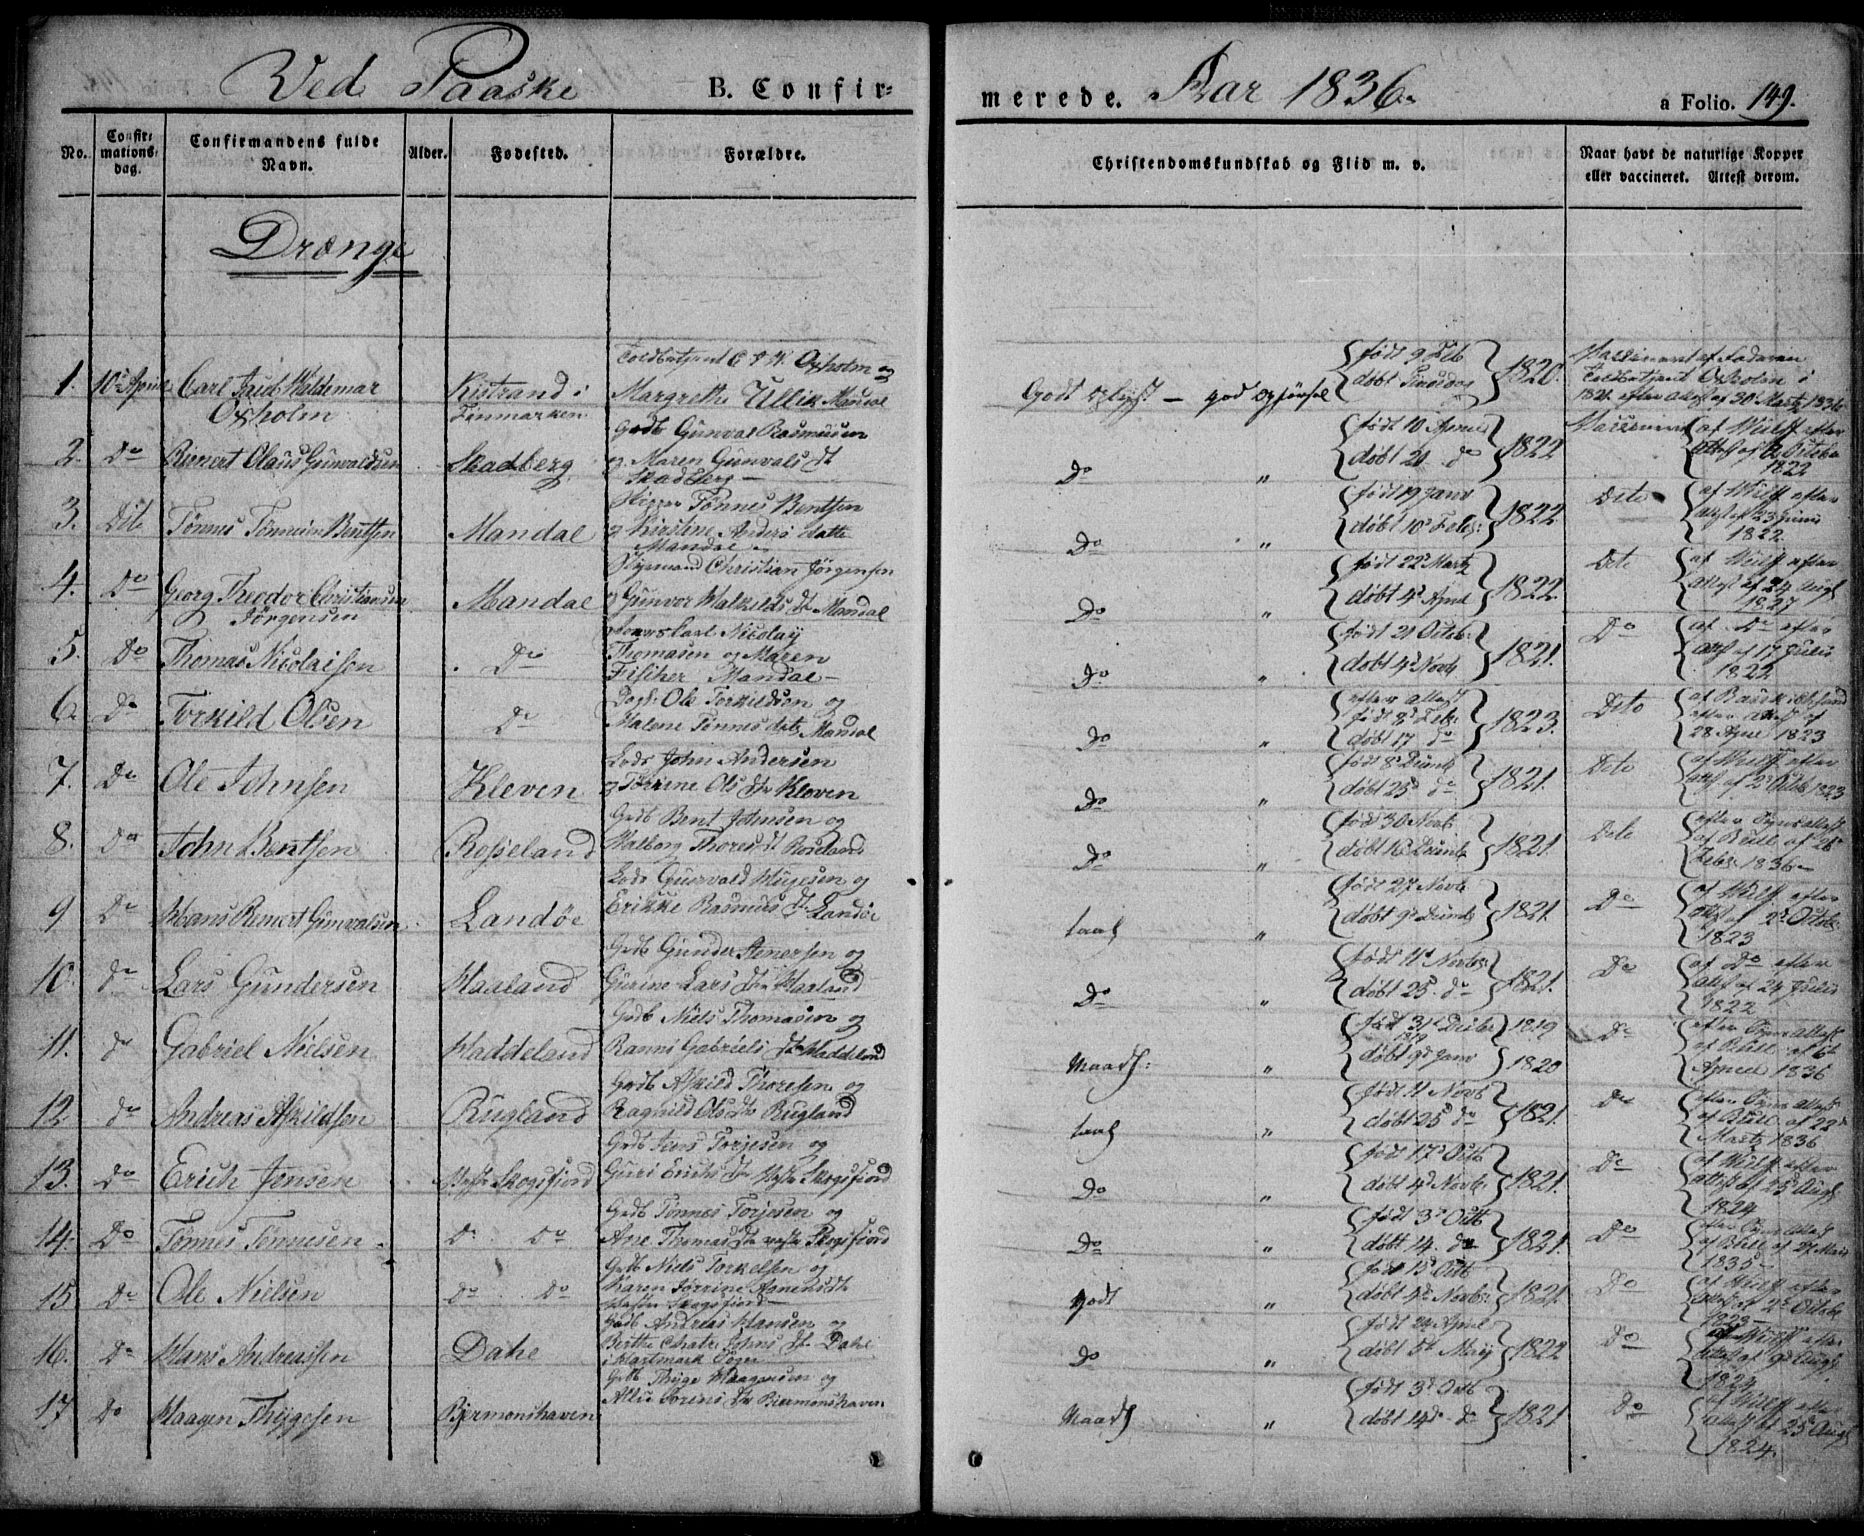 Ved Paaske B. Confir=
merede. Aar 1836. a Folio. 149.
No. Confirmationsdag. Confirmandens fulde Navn. Alder. Fødested. Forældre.
Christendomskundskab og Flid m. v. Naar havt de naturlige Kopper eller vaccineret. Attest derom.
Drænge
1. 10de April Carl Waldemar Oxholm Kistrand i Finmarken Toldbetjent Oxholm og Margrethe Ullik Mandal
Godt oplyst — god opførsel født 9 Feb døbt 1820. Vaccineret af Faderen Toldbetjent Oxholm i efter attest af 30 Martz 1836
2. Do Reinert Olaus Gunvaldsen Skadberg Gdb Gunval Rasmussen og Maren Gunvals dt Skadberg —
Do " født 10 April døbt 21 do 1822 Vaccineret af Wulff efter attest af Octobr 1822
3. Dito Tønnes Tønnesen Bentsen Mandal Tønnes Bentsen og Kirstine Anders datter Mandal
Do " født 19 Janv døbt 10 Febr: 1822 Deto af Wulff efter attest af 23 Juni 1822
4. Do Georg Theodor Christiansen Jørgensen Mandal Styrmand Christian Jørgensen og Gunvor Valkilds dt Mandal
Do " født 22 Martz døbt 4d April 1822 Deto af Wulff efter attest af 24 Augt 1827
5. Do Thomas Nicolaisen Do Nicolay Thomasen og Maren Fischer Mandal —
Do " født 21 Octbr døbt 4d Novb 1821. Do af Do efter attest af 17 Julii 1822
6. Do Torkild Olsen Do Ole Torkildsen og Malene Tønnes datr Mandal
Do " efter attest født 8d Febr døbt 17 do 1823. Deto efter attest af 28 April 1823
7. Do Ole Johnsen Kleven Lods John Andersen og Tørrine Ols dtr Kleven
Do " født 8d Decemb døbt 25d do 1821. Deto af Wulff efter attest af 2 Octb 1823
8. Do John Bentsen Rosseland Gdb Bent Johnsen og Valborg Thores dt Roseland
Do " født 30 Novb døbt 16 Decemb 1821. Deto efter attest af Bull af 26 Febr 1836 —
9 Do Hans Reinert Gunvalsen Landøe Lods Gunvald og Erikke Rasmus dt Landøe
taal " født 27 Novb døbt 9d Decemb 1821. Do af Wulff efter attest af 2d Octobr 1823
10. do Lars Gundersen Haaland Gdb Gunder og Gurine Lars dtr Haaland
Do " født 11d Novbr: døbt 25. do 1821. Do af Do efter attest af 24 Julii 1822
11. do Gabriel Nielsen Haddeland Gdb Niels Thomasen og Ranni Gabriels dtr Haddeland
Maadl: " født 31d Decbr 1819 døbt 9d Janv 1820 Do efter attest af Bull af 6t April 1836
12 do Andreas Askildsen Rugland Gdb Askild Thoresen og Ragnild Ols dtr Rugland
taal " født 11 Novb døbt 25d do 1821. Do efter attest af Bull af 22d Martz 1836
13. Do Erich Jensen Vestre Skogsfjord Gdb Jens Torjesen og Guri Erichs dtr Vestre Skogsfiord
Do " født 17d Octb døbt 4d Novb 1821. Do af Wulff efter attest af 25d Augt 1824
14. Do Tønnes Tønnesen Do Do Gdb Tønnes Torjesen og Ane Thomas dtr vestre Skogsfiord
Do " født 3d Octb døbt 14. do 1821. Do efter attest af Bull af 27 1835 —
15. Do Ole Nielsen Do Do Gdb Niels Torkelsen og Karen Tørrine dt Vestre Skogsfiord
godt " født 15d Octb døbt 4d Novbr: 1821. Do af Wulff efter attest af 2d Octobr 1823 —
16. Do Hans Andreassen Dahe Gdb Andreas Hansen og Berthe Johns dt Dahe i Hartmark Sogn
do " født 24 April døbt 5t Maij 1822 Do af Wulff efter attest af 9d Augt.
17 Do Haagen Thygesen Bjermonshaven Gdb Thyge Haagensen og dtr Bjermonshaven
Maadl " født 3d Octb døbt 14d do 1821. Do af Wulff efter attest af 25 Augt 1824.